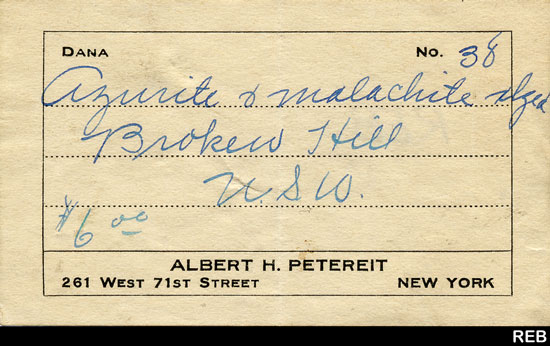 DANA No. 38
Azurite & malachite xlzed
Broken Hill
N.S.W.
$6.00
ALBERT H. PETEREIT
261 WEST 71ST STREET NEW YORK
REB